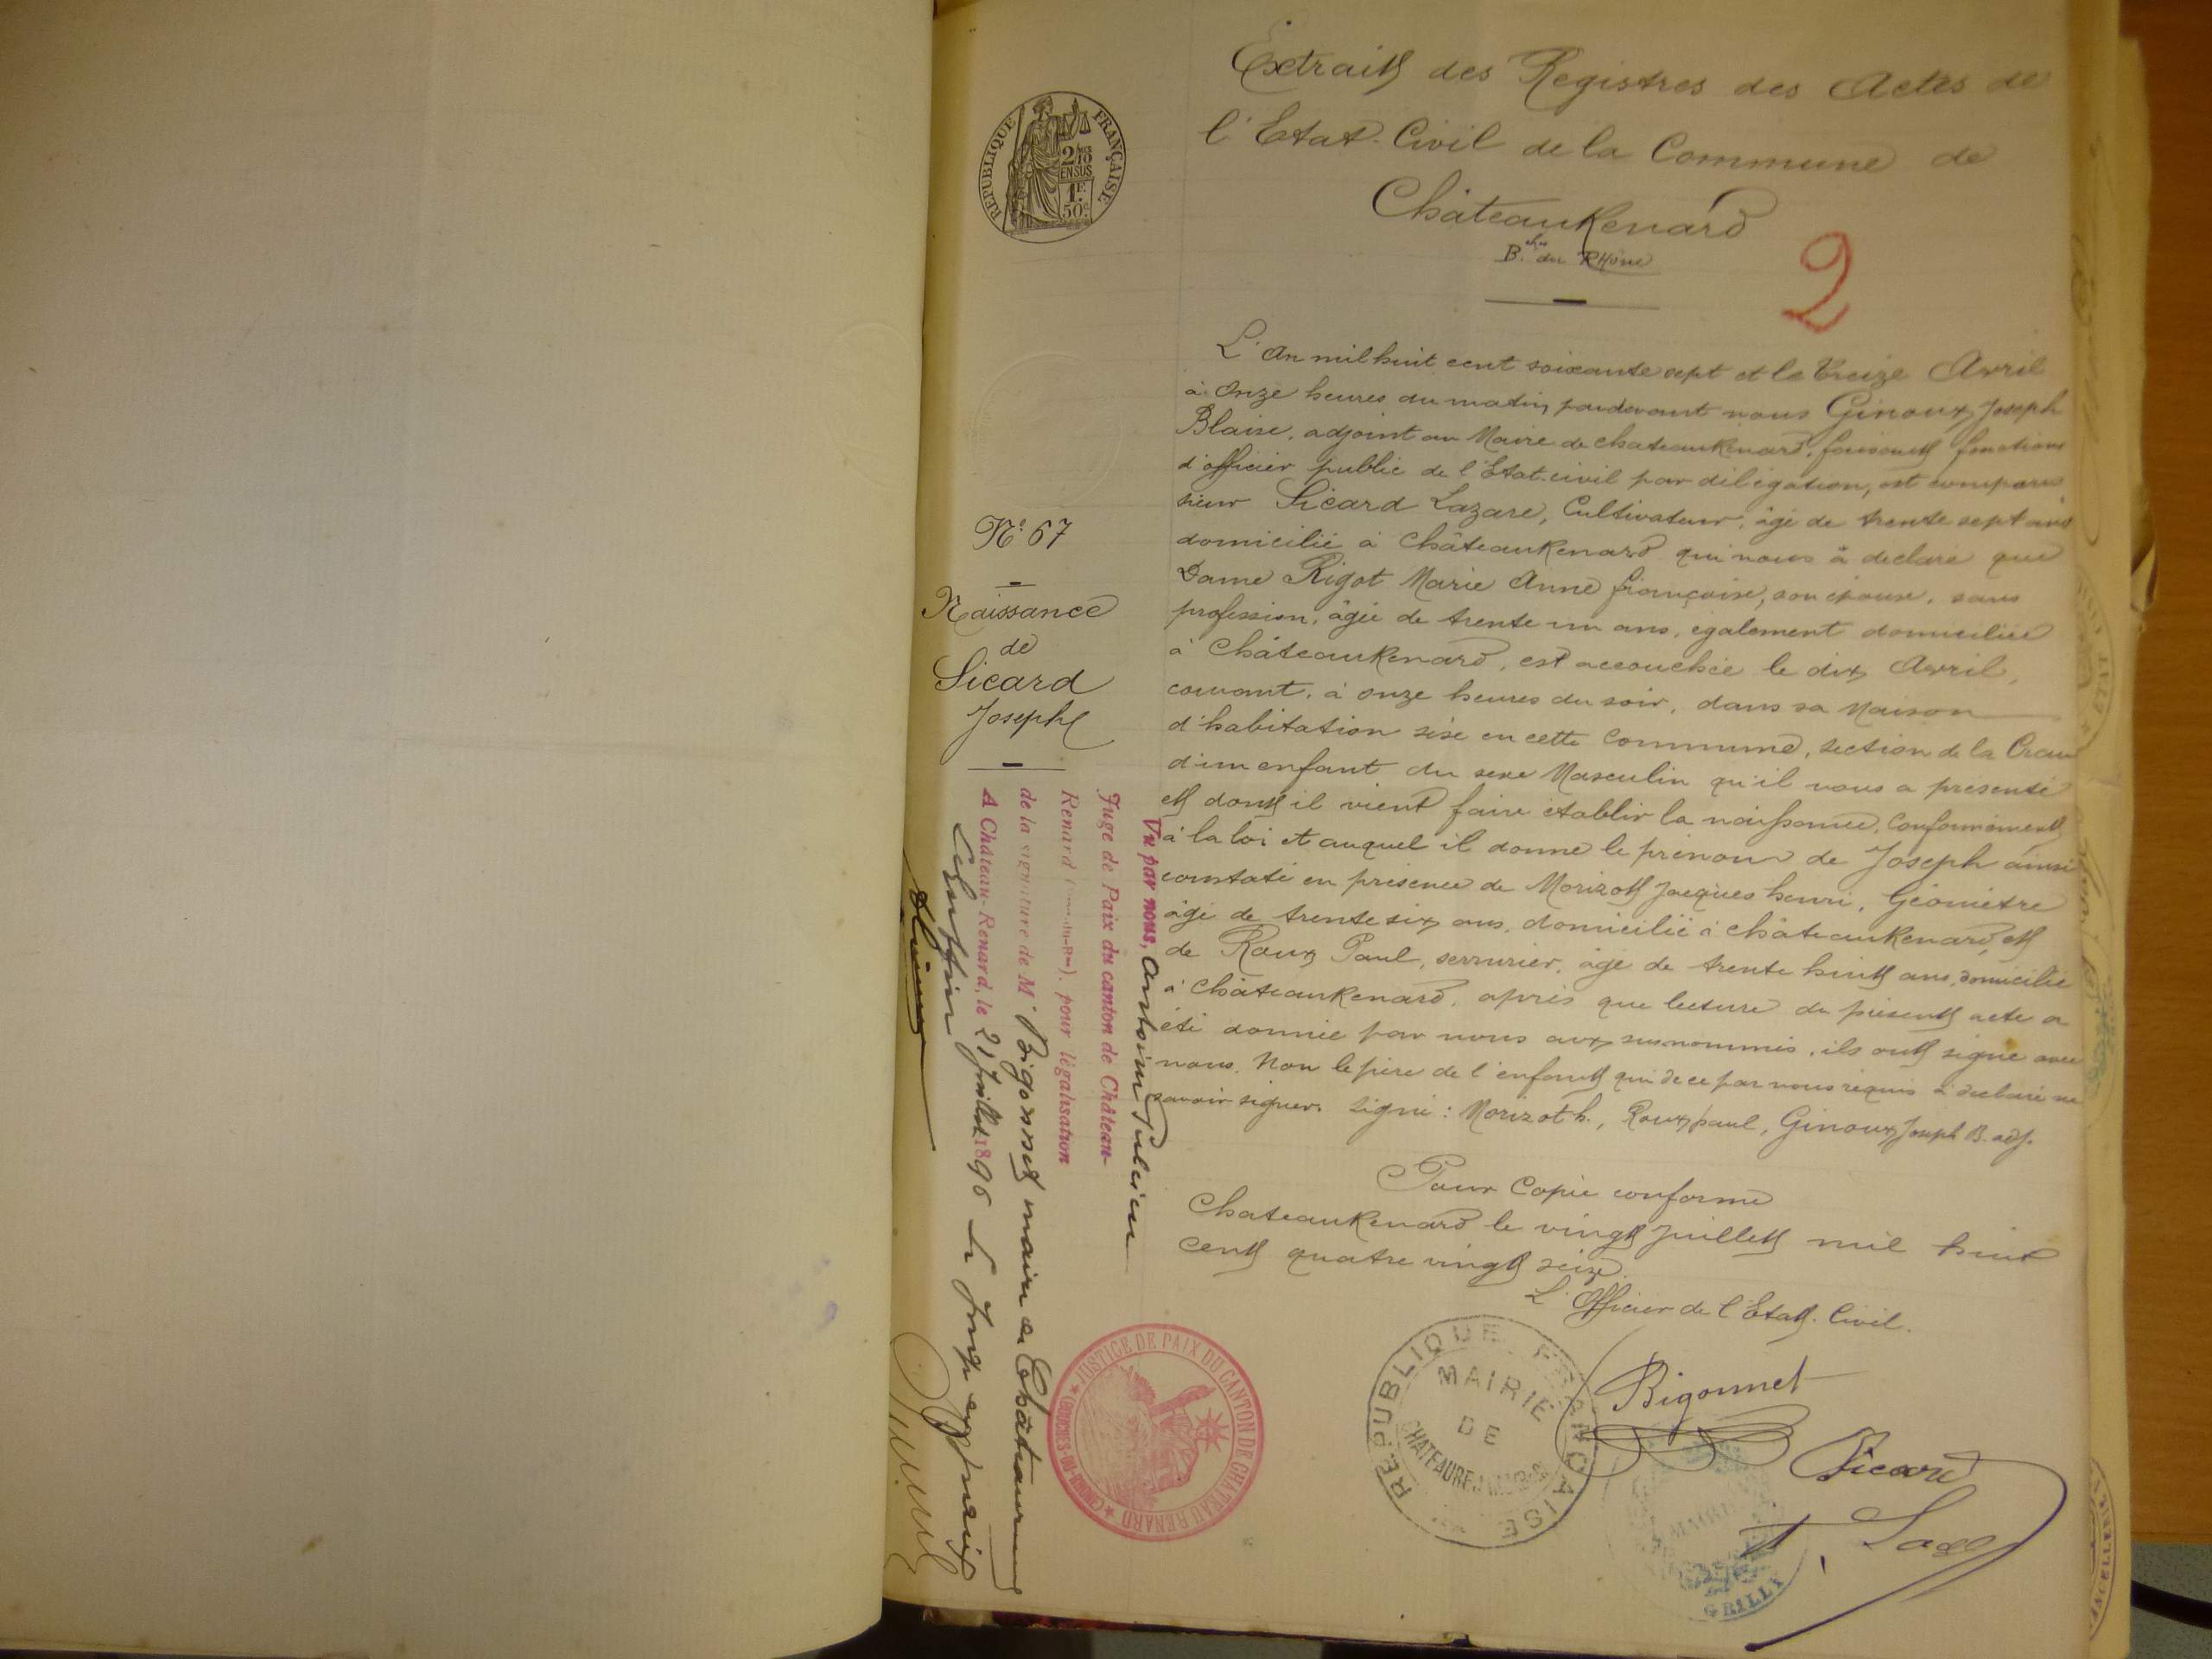 Extrait des Registres des Actes de
l'Etat-Civil de la Commune de
ChâteauRenard
B.ches du Rhône
2
REPUBLIQUE FRANÇAISE
2/10mes
EN SUS
1F.
50c.
N° 67
Naissance
de
Sicard
Joseph
L'An mil huit cent soixante sept et le treize Avril
à Onze heures du matin, pardevant nous Ginoux Joseph
Blaise, adjoint au Maire de chateauRenard, faisant fonctions
d'officier public de l'Etat-civil par délégation, est comparu
sieur Sicard Lazare, Cultivateur, âgé de trente sept ans
domicilié à ChâteauRenard qui nous à déclaré que
Dame Rigot Marie Anne françoise, son épouse, sans
profession, âgée de trente un ans, également domiciliée
à ChâteauRenard, est accouchée le dix Avril,
courant, à onze heures du soir, dans sa Maison
d'habitation sise en cette Commune, section de la Crau
d'un enfant du sexe Masculin qu'il nous a présenté
et dont il vient faire établir la naissance, Conformément
à la loi et auquel il donne le prénom de Joseph ainsi
constaté en présence de Morizot Jacques henri, Géomètre
âgé de trente six ans, domicilié à châteauRenard, et
de Roux Paul, serrurier, âgé de trente huit ans, domicilié
à ChâteauRenard, après que lecture du présent acte a
été donnée par nous aux susnommés, ils ont signé avec
nous, Non le père de l'enfant qui de ce par nous requis à déclaré ne
savoir signer. Signé : Morizot h., Roux paul, Ginoux Joseph B. adj.
Pour Copie conforme
ChateauRenard le vingt Juillet mil huit
cent quatre vingt seize.
L'Officier de l'Etat-Civil.
Bigonnet
Sicard
Vu par nous, Antoine
Juge de Paix du canton de Château-
Renard (B.-du-R.), pour légalisation
de la signature de M. Bigonnet maire de Château
A Château-Renard, le 21 Juillet 1896
JUSTICE DE PAIX DU CANTON DE CHATEAU RENARD
(BOUCHES-DU-RHONE)
REPUBLIQUE FRANÇAISE
MAIRIE
DE
CHATEAURENARD
MAIRIE
GRILLY